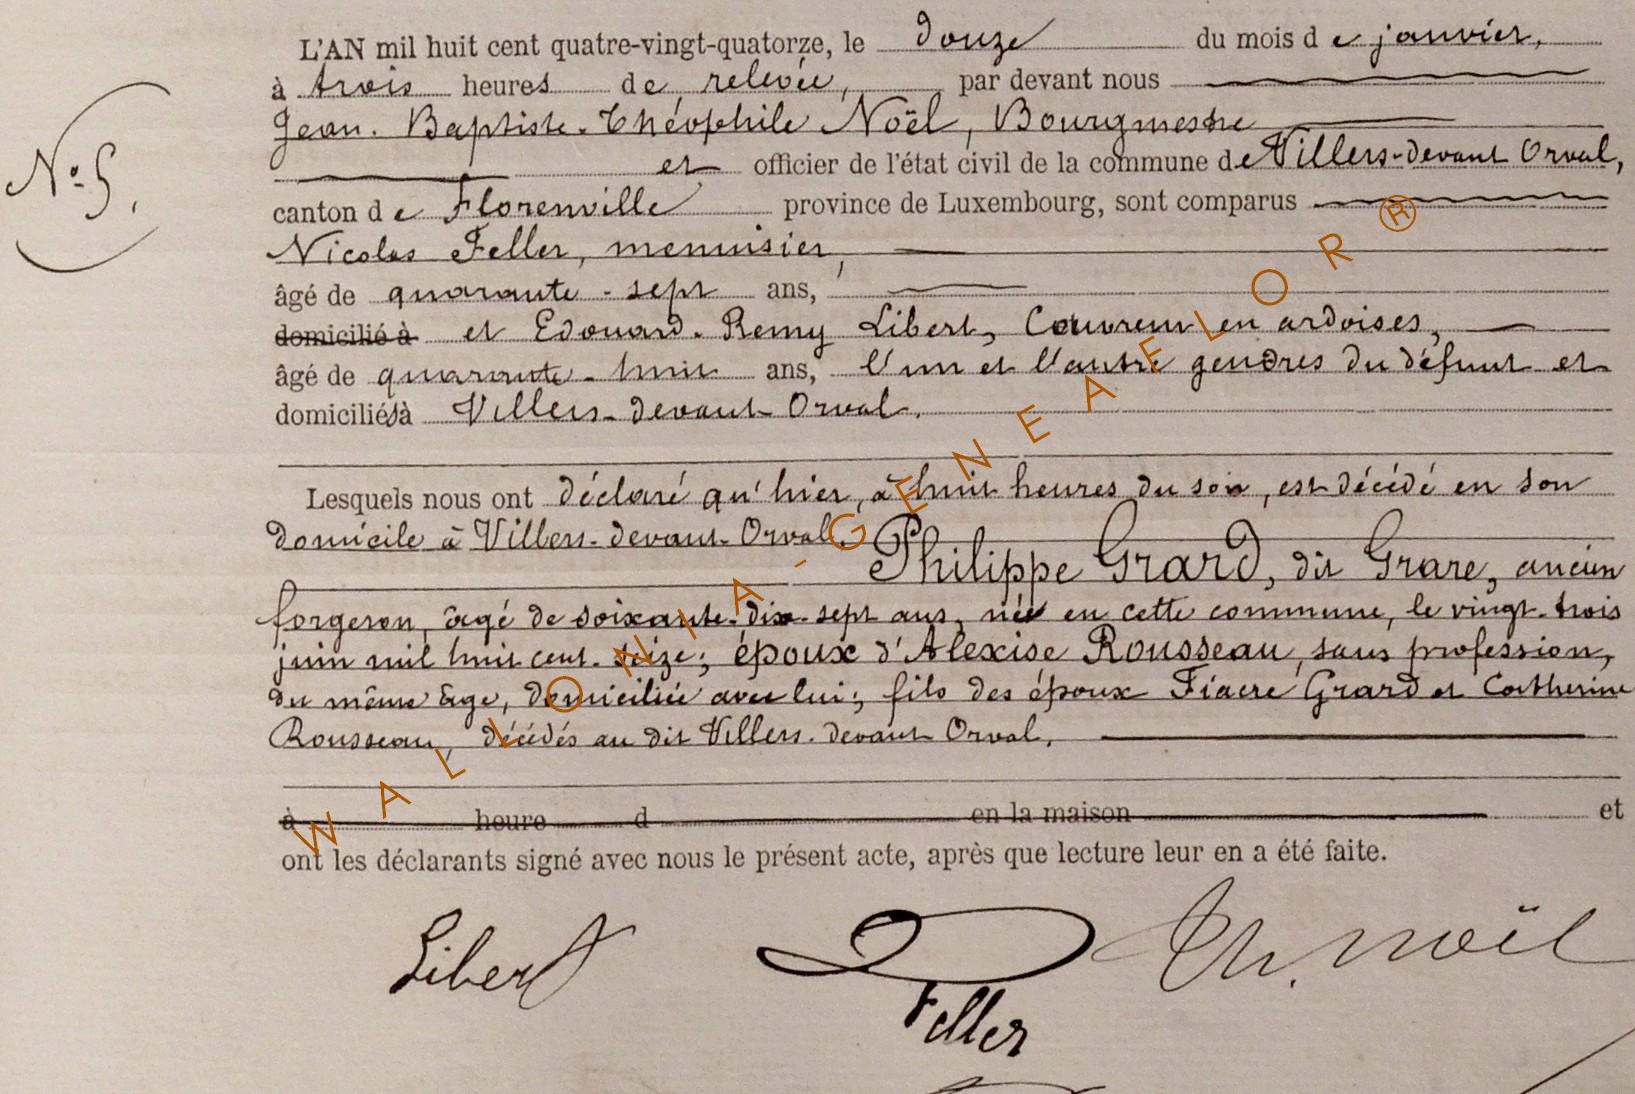 L'AN mil huit cent quatre-vingt-quatorze, le douze du mois de janvier,
à trois heures de relevée, par devant nous
Jean-Baptiste-Théophile Noël, Bourgmestre
et officier de l'état civil de la commune de Villers-devant Orval,
N° 5.
canton de Florenville province de Luxembourg, sont comparus
Nicolas Feller, menuisier,
âgé de quarante-sept ans,
domicilié à et Edouard-Remy Libert, Couvreur en ardoises,
âgé de quarante-huit ans, l'un et l'autre gendres du défunt et
domiciliés à Villers-devant-Orval.
Lesquels nous ont déclaré qu'hier, à huit heures du soir, est décédé en son
domicile à Villers-devant-Orval, Philippe Grard, dit Grare, ancien
forgeron, âgé de soixante-dix-sept ans, né en cette commune, le vingt-trois
juin mil huit cent-seize; époux d'Alexise Rousseau, sans profession,
du même âge, domiciliée avec lui; fils des époux Fiacre Grard et Catherine
Rousseau, décédés au dit Villers-devant-Orval.
à heure d en la maison et
ont les déclarants signé avec nous le présent acte, après que lecture leur en a été faite.
Libert
Feller
Th. Noël
WALLONIA-GENEAELOR®